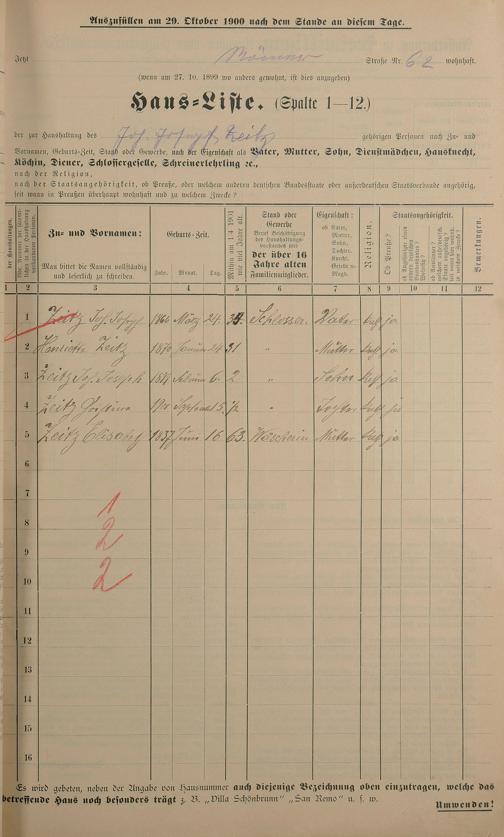 Auszufüllen am 29. Oktober 1900 nach dem Stande an diesem Tage.
Jetzt Römer Straße Nr. 62 wohnhaft.
(wenn am 27. 10. 1899 wo anders gewohnt, ist dies anzugeben)
Haus-Liste. (Spalte 1—12.)
der zur Haushaltung des Joh. Joseph Zeitz gehörigen Personen nach Zu- und
Vornamen, Geburts-Zeit, Stand oder Gewerbe, nach der Eigenschaft als Vater, Mutter, Sohn, Dienstmädchen, Hausknecht,
Köchin, Diener, Schlossergeselle, Schreinerlehrling ec.,
nach der Religion,
nach der Staatsangehörigkeit, ob Preuße, oder welchem anderen deutschen Bundesstaate oder außerdeutschen Staatsverbande angehörig,
seit wann in Preußen überhaupt wohnhaft und zu welchem Zwecke?
Zu- und Vornamen:
Man bittet die Namen vollständig
und leserlich zu schreiben.
Geburts-Zeit.
Jahr. Monat. Tag.
Mithin am 1. 4. 1901 wie viel Jahre alt.
Stand oder
Gewerbe
Beruf Beschäftigung
des Haushaltungs-
vorstandes und
der über 16
Jahre alten
Familienmitglieder.
Eigenschaft:
ob Vater,
Mutter,
Sohn,
Tochter,
Knecht,
Geselle u.
Magd.
Religion.
Staatsangehörigkeit.
Ob Preuße?
Bemerkungen.
1 2 3 4 5 6 7 8 9 10 11 12
1 Zeitz Joh. Joseph 1866 März 24. 34. Schlosser Vater kath ja
2 Henriette Zeitz 1870 Januar 24 31 " Mutter kath ja
3 Zeitz Joh. Joseph 6. 2 " Sohn kath ja
4 Zeitz 5. " Tochter kath ja
5 Zeitz 1837 Juni 16 63. Wäscherin Mutter kath ja
6
7
8
9
10
11
12
13
14
15
16
1
2
2
Es wird gebeten, neben der Angabe von Hausnummer auch diejenige Bezeichnung oben einzutragen, welche das
betreffende Haus noch besonders trägt z. B. „Villa Schönbrunn" „San Remo" u. s. w.
Umwenden!